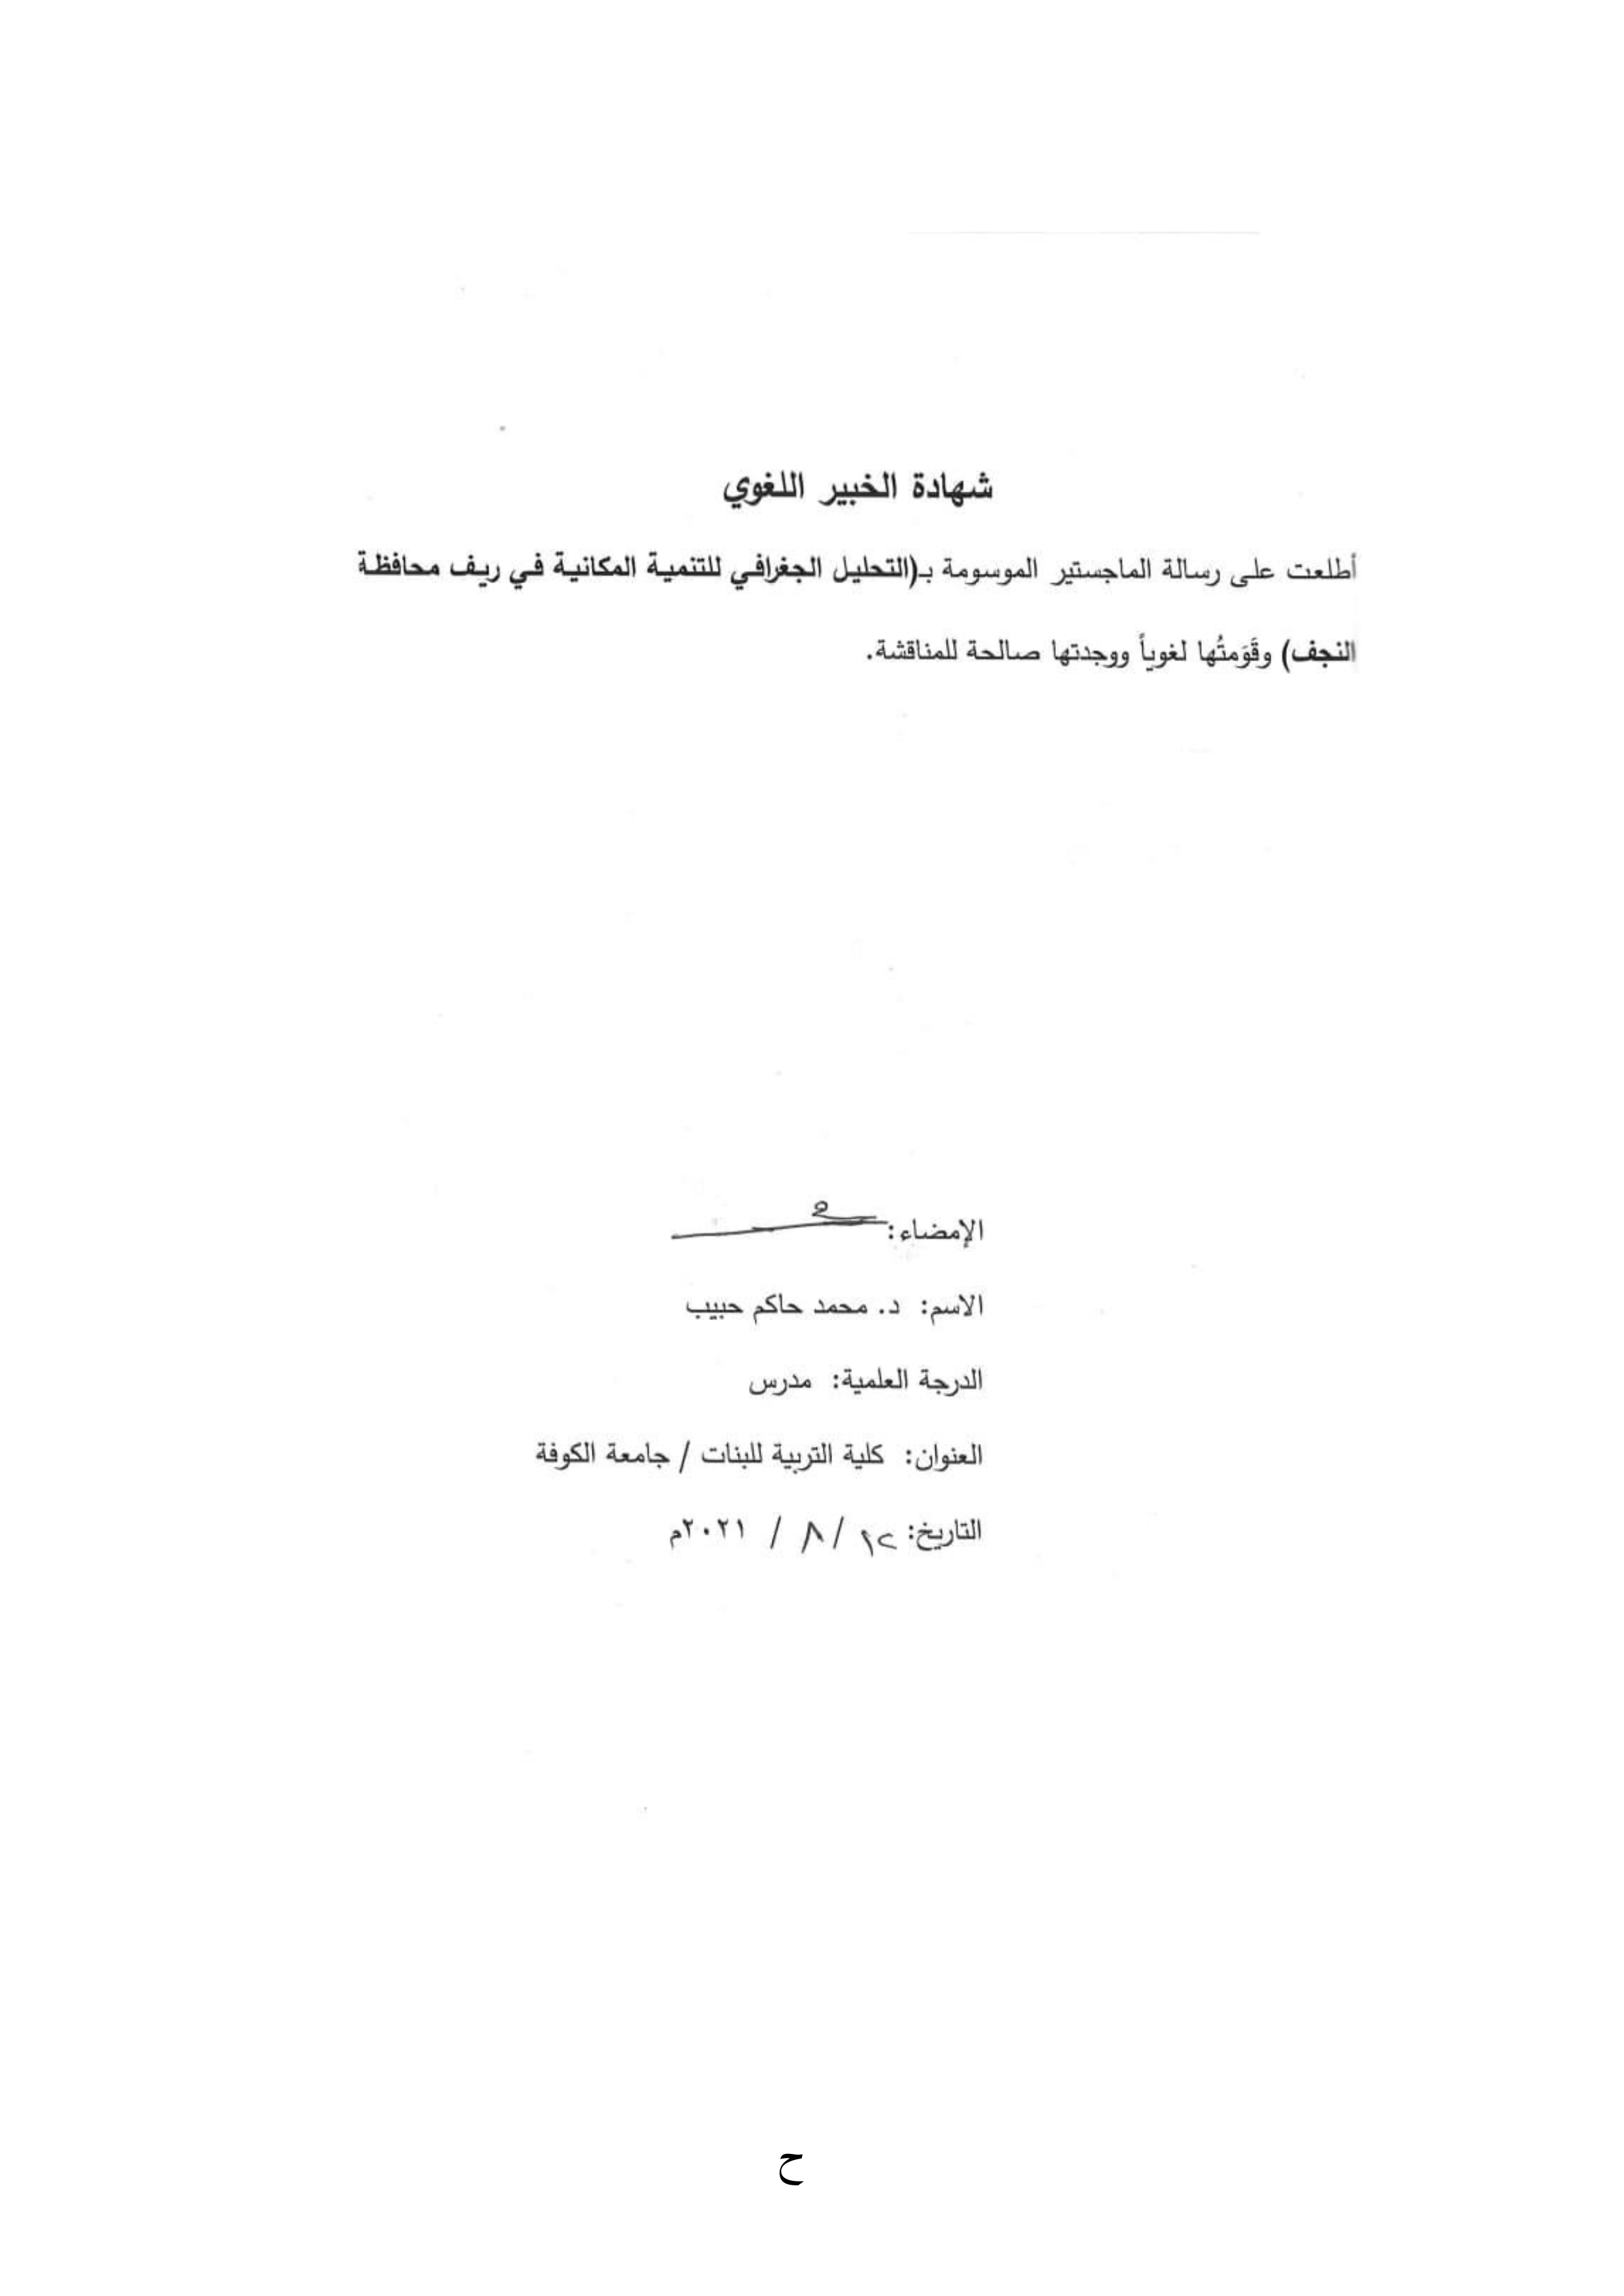 شهادة الخبير اللغوي
أطلعت على رسالة الماجستير الموسومة بـ(التحليل الجغرافي للتنمية المكانية في ريف محافظة
النجف) وقَوَمتُها لغوياً ووجدتها صالحة للمناقشة.
الإمضاء:
الاسم: د. محمد حاكم حبيب
الدرجة العلمية: مدرس
العنوان: كلية التربية للبنات / جامعة الكوفة
التاريخ: / ٨ / ٢٠٢١م
ح